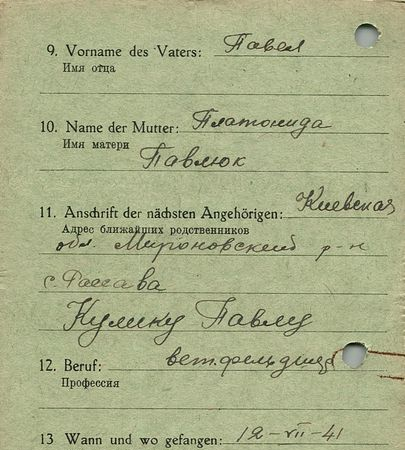 9. Vorname des Vaters: Павел
Имя отца
10. Name der Mutter: Платонида
Имя матери
Павлюк
11. Anschrift der nächsten Angehörigen: Киевская
Адрес ближайших родственников
обл. Мироновский р-н
с. Россава
Кулику Павлу
12. Beruf: ветфельдшер
Профессия
13 Wann und wo gefangen: 12-VII-41